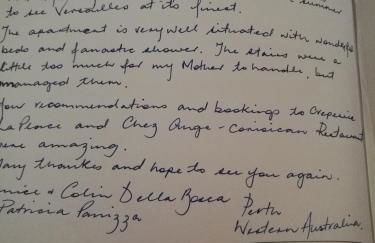 summer
to see Versailles at its finest.
The apartment is very well situated with wonderful
beds and fanastic shower. The stairs were a
little too much for my Mother to handle, but
managed them.
Your recommendations and bookings to Creperie
La Place and Chez Ange - Corsican Restaurant
were amazing.
Many thankes and hope to see you again.
& Colin Della Bosca Perth
Patricia Panizza Western Australia.